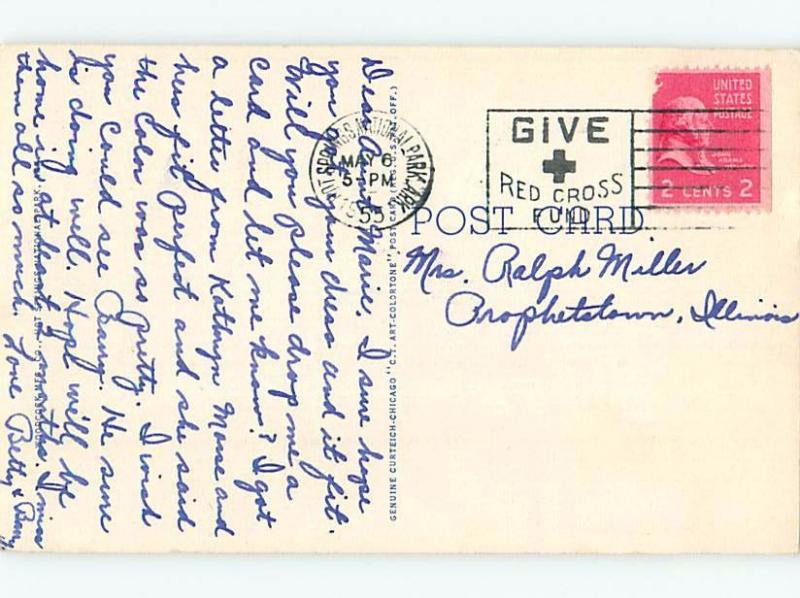 Dear Aunt Marie. I sure hope
you got Kim dress and it fit.
Will you please drop me a
card and let me know? I got
a letter from Kathryn Mane and
hers fit perfect and she said
the color was so pretty. I wish
you could see Barry. He sure
is doing well. Hope will be
home in at least 3 months. I miss
them all so much. Love Betty & Barry
GENUINE CURTEICH-CHICAGO "C.T. ART-COLORTONE" POST CARD (REG. U.S. PAT. OFF.)
NATIONAL PARK, ARK.
MAY 6
5-PM
1955
GIVE
RED CROSS
FUND
UNITED
STATES
POSTAGE
JOHN
ADAMS
2 CENTS 2
POST CARD
Mrs. Ralph Miller
Prophetstown, Illinois